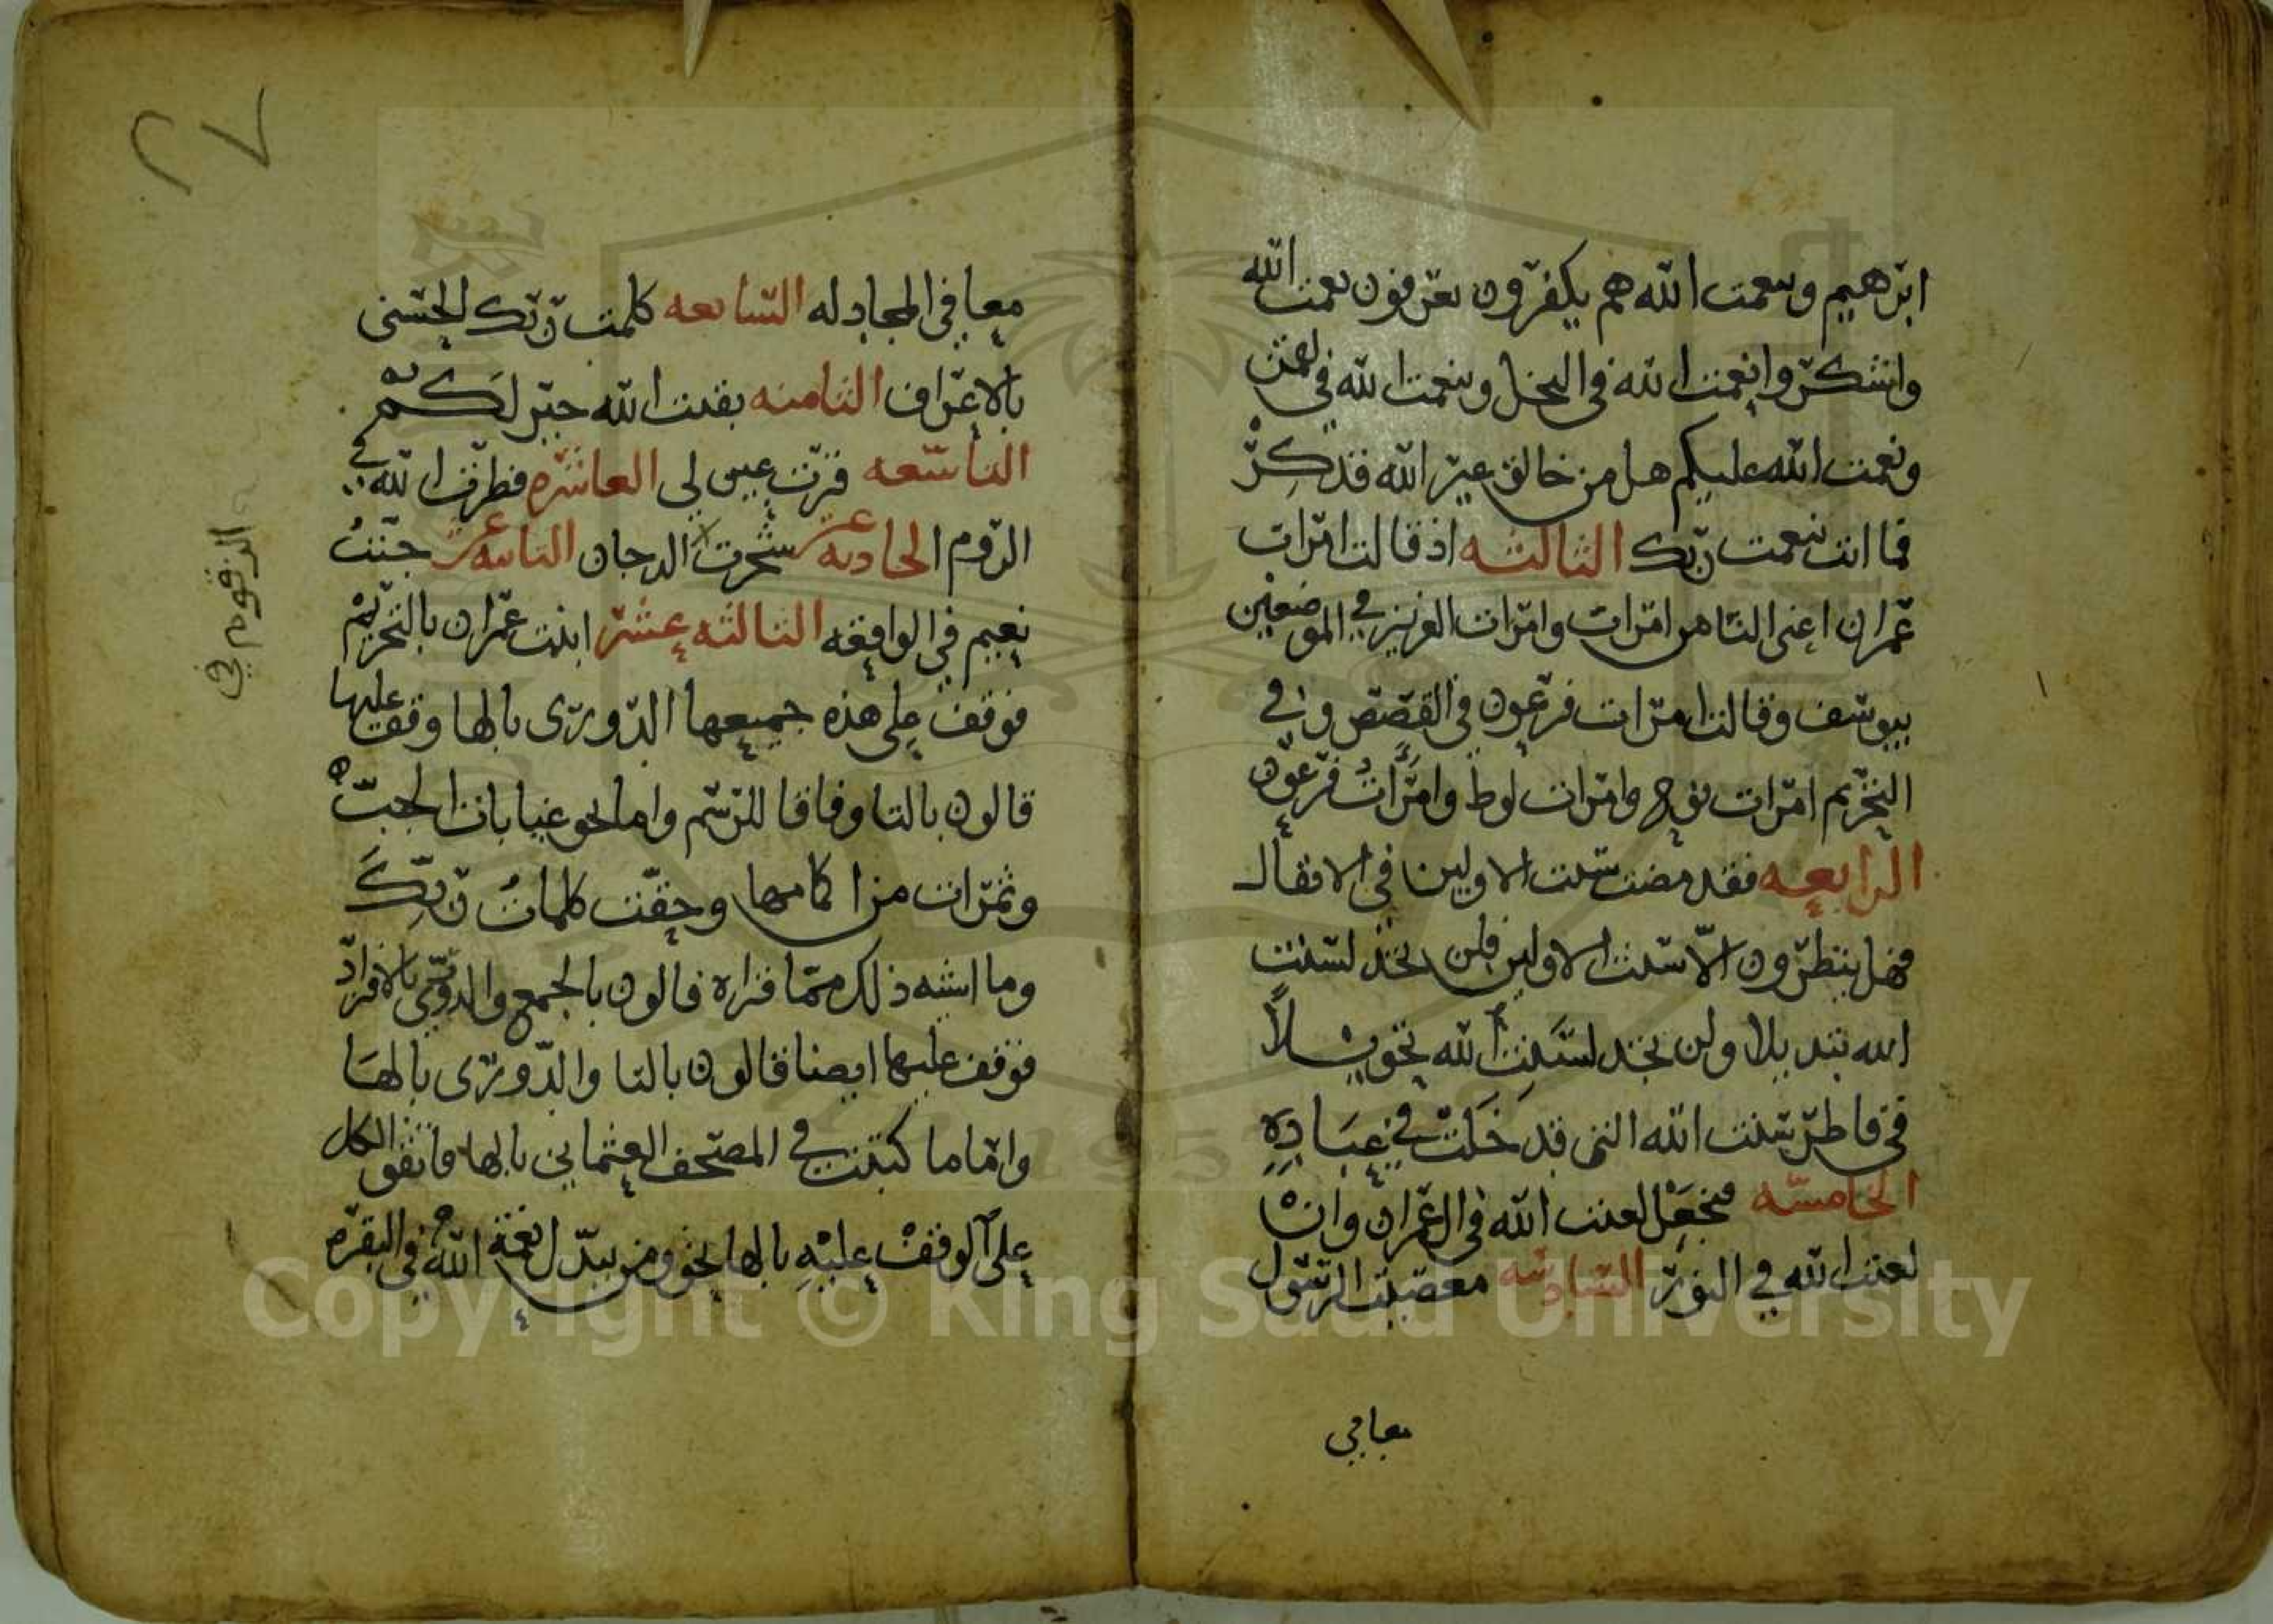 ابرهيم وبنعمت الله هم يكفرون يعرفون نعمت الله
واشكروا نعمت الله في النحل وبنعمت الله في لقمن
ونعمت الله عليكم هل من خالق غير الله فذكر
فما انت بنعمت ربك الثالثه اذ قالت امرات
عمران اعنى التا من امرات وامرات العزيز في الموضعين
بيوسف وقالت امرات فرعون في القصص وفي
التحريم امرات نوح وامرات لوط وامرأت فرعون
الرابعه فقد مضت سنت الاولين في الانفال
فهل ينظرون الّا سنت الاولين فلن تجد لسنت
الله تبديلا ولن تجد لسنت الله تحويلاً
في فاطر سنت الله التى قد خلت في عباده
الخامسه فنجعل لعنت الله في ال عمران وان
لعنت الله في النور السادسه معصيت الرسول
معا في
٢٧
معا في المجادله السابعه كلمت ربك الحسنى
بالاعراف الثامنه بقيت الله خير لكم
التاسعه قرت عين لي العاشره فطرت الله في
الروم الحاديه عشر شجرت الدخان الثانيه عشر جنت
نعيم في الواقعه الثالثه عشر ابنت عمران بالتحريم
فوقف على هذه جميعها الدورى بالها وقف عليها
قالون بالتا وفاقا للرسم واما نحو غيابات الجب
وثمرات من اكمامها وحقت كلمات ربك
وما اشبه ذلك مما قراه قالون بالجمع والدورى بالافراد
فوقف عليها ايضا قالون بالتا والدورى بالها
واما ما كتبت في المصحف العثماني بالها فاتفق الكل
على الوقف عليه بالها نحو ومن يبدل نعمة الله في البقره
الزقوم في
Copyright © King Saud University
1957